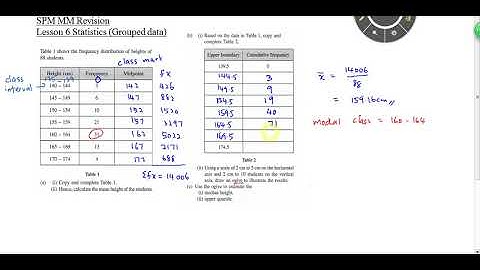 SPM MM Revision
Lesson 6 Statistics (Grouped data)
Table 1 shows the frequency distribution of heights of
88 students.
class mark
class
interval
Height (cm) Frequency Midpoint fx
140 – 144 3 142 426
145 – 149 6 147 882
150 – 154 10 152 1520
155 – 159 21 157 3297
160 – 164 31 162 5022
165 – 169 13 167 2171
170 – 174 4 172 688
Table 1
Σfx = 14006
(a) (i) Copy and complete Table 1.
(ii) Hence, calculate the mean height of the students.
(b) (i) Based on the data in Table 1, copy and
complete Table 2.
Upper boundary Cumulative frequency
139.5 0
144.5 3
149.5 9
154.5 19
159.5 40
164.5 71
169.5
174.5
Table 2
(ii) Using a scale of 2 cm to 5 cm on the horizontal
axis and 2 cm to 10 students on the vertical
axis, draw an ogive to illustrate the results.
(c) Use the ogive to estimate the
(i) median height.
(ii) upper quartile.
x̄ = 14006
88
= 159.16cm
modal class = 160 - 164